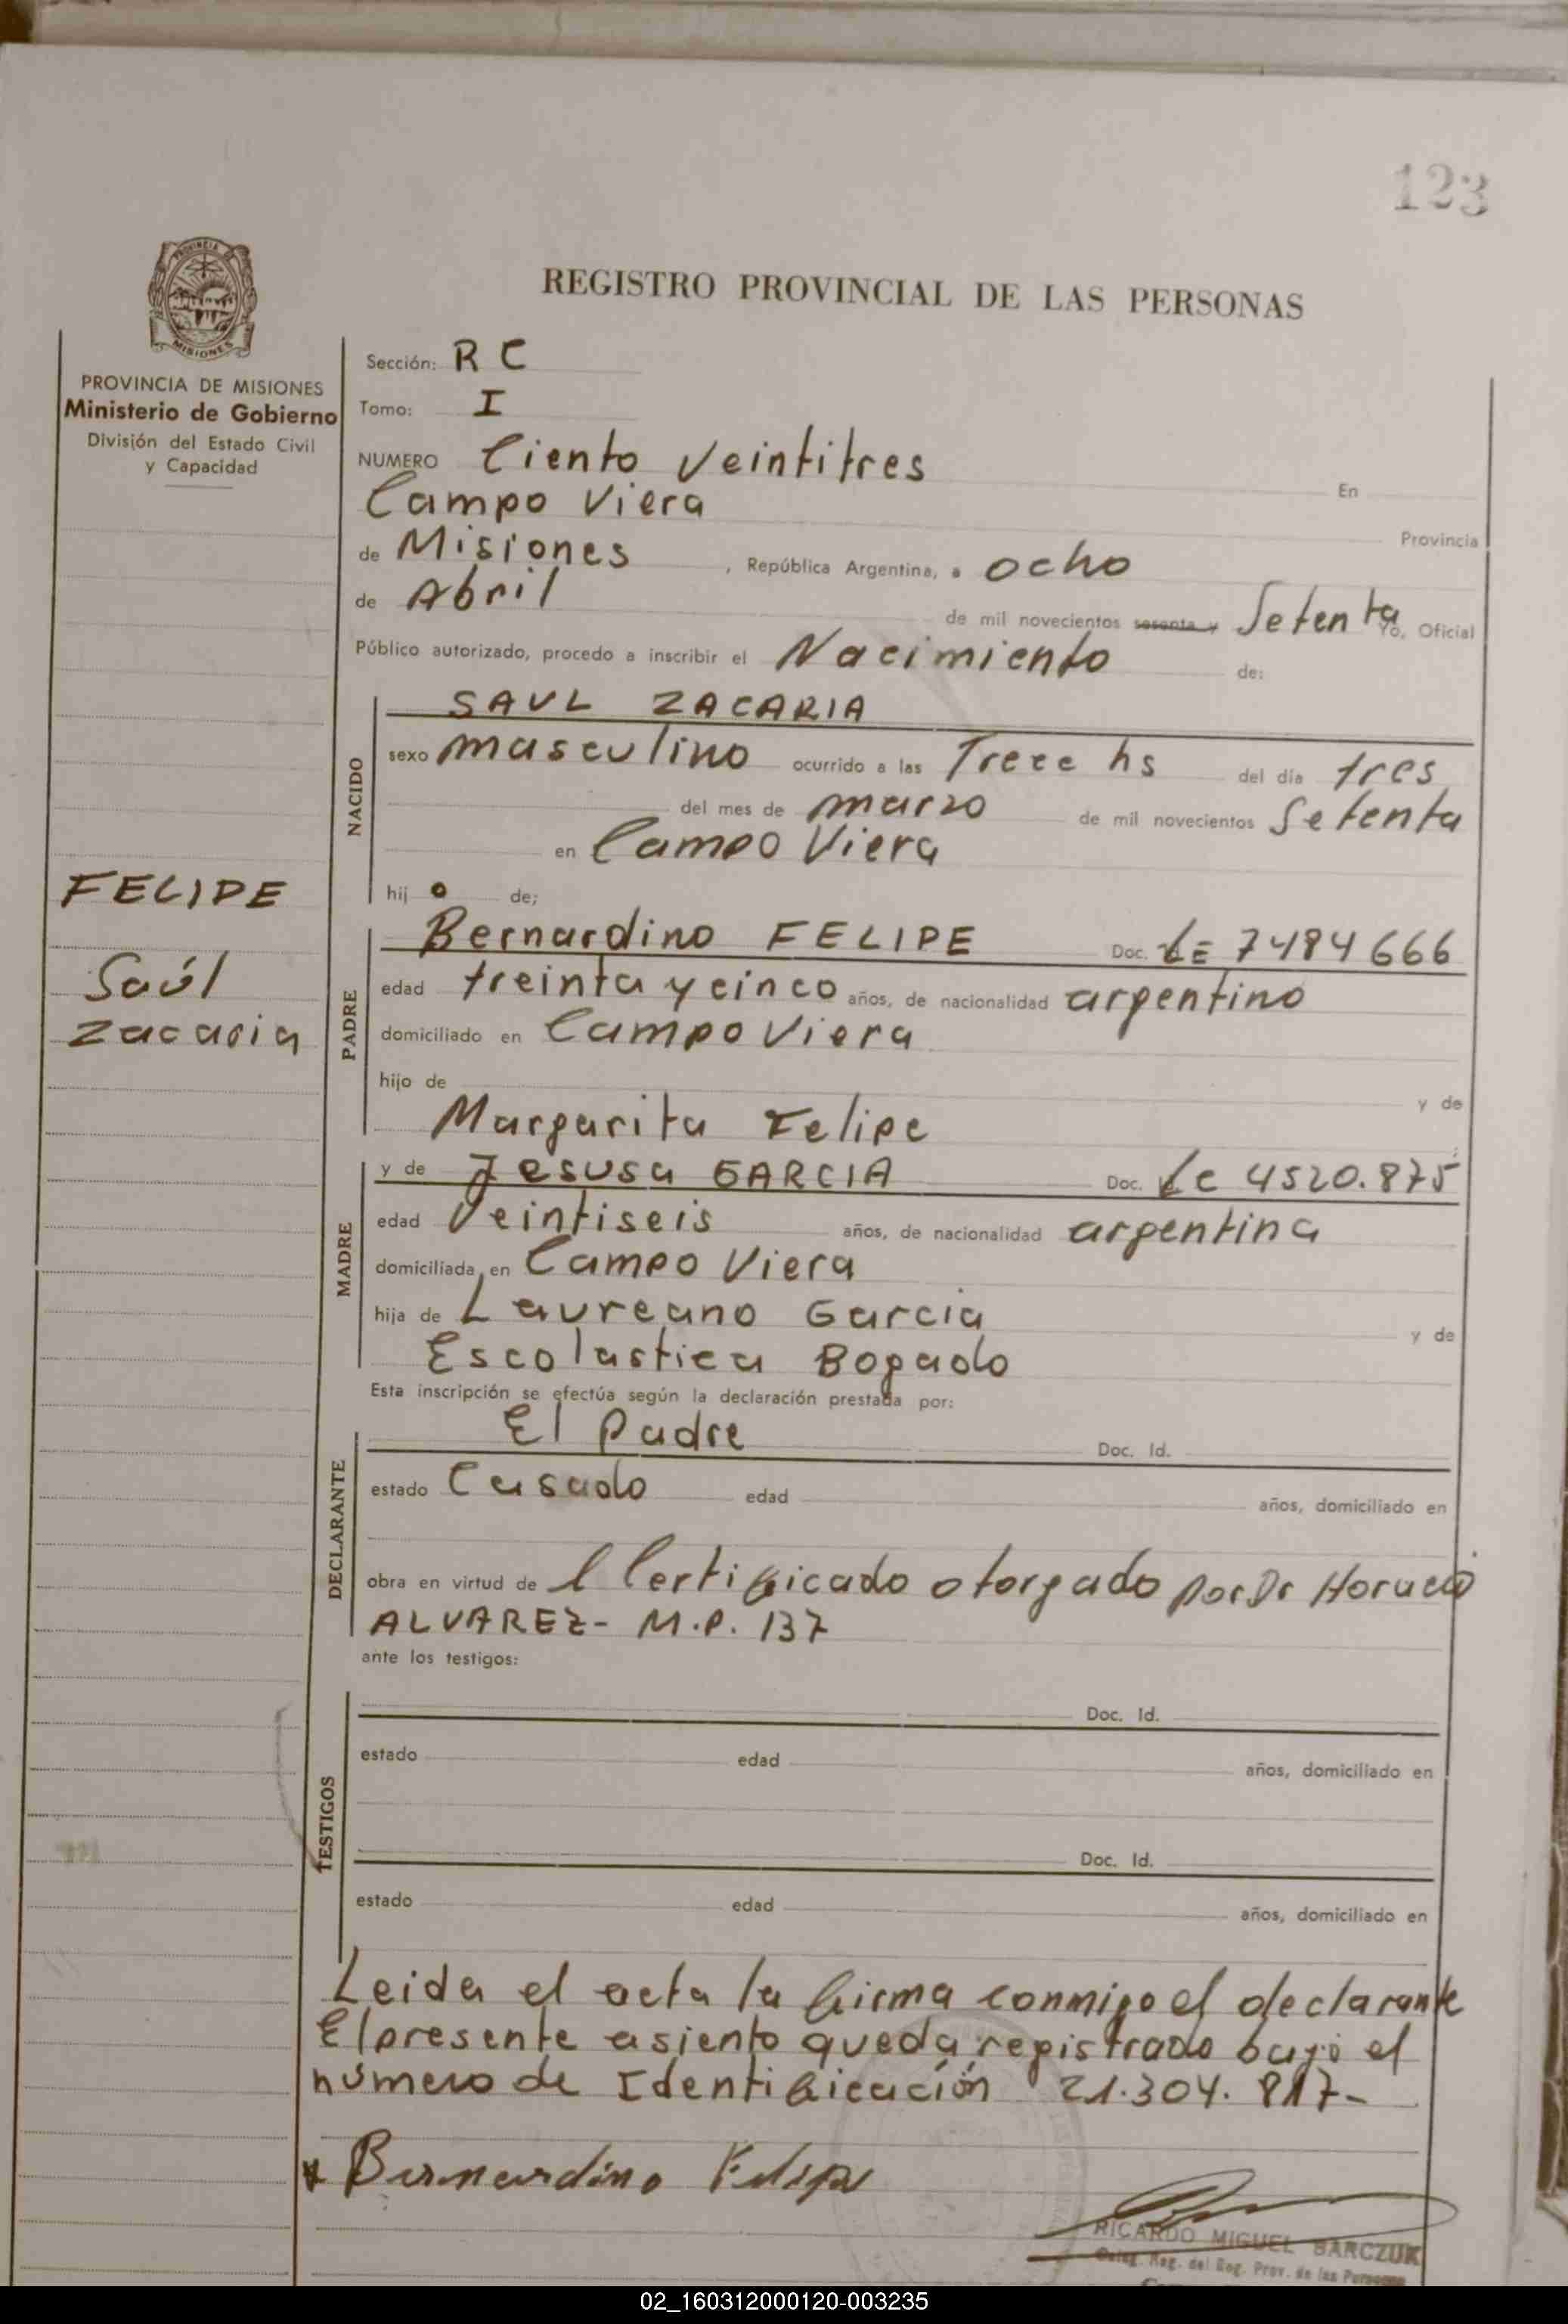 123
PROVINCIA
MISIONES
REGISTRO PROVINCIAL DE LAS PERSONAS
PROVINCIA DE MISIONES
Ministerio de Gobierno
División del Estado Civil
y Capacidad
Sección: R C
Tomo: I
NUMERO Ciento Veintitres En
Campo Viera Provincia
de Misiones , República Argentina, a ocho
de Abril de mil novecientos sesenta y Setenta Yo, Oficial
Público autorizado, procedo a inscribir el Nacimiento de:
SAUL ZACARIA
NACIDO
sexo masculino ocurrido a las Trece hs del día tres
del mes de marzo de mil novecientos Setenta
en Campo Viera
hij o de;
FELIPE
Saúl
Zacaria
PADRE
Bernardino FELIPE Doc. LE 7484666
edad treinta y cinco años, de nacionalidad argentino
domiciliado en Campo Viera
hijo de y de
Margarita Felipe
MADRE
y de Jesusa GARCIA Doc. Lc 4520.875
edad Veintiseis años, de nacionalidad argentina
domiciliada en Campo Viera
hija de Laureano Garcia y de
Escolastica Bogado
Esta inscripción se efectúa según la declaración prestada por:
DECLARANTE
El Padre Doc. Id.
estado Casado edad años, domiciliado en
obra en virtud de l Certificado otorgado por Dr Horacio
ALVAREZ- M.P. 137
ante los testigos:
TESTIGOS
Doc. Id.
estado edad años, domiciliado en
Doc. Id.
estado edad años, domiciliado en
Leida el acta la firma conmigo el declarante
El presente asiento queda registrado bajo el
número de Identificación 21.304.817-
Bernardino Felipe
RICARDO MIGUEL BARCZUK
Deleg. Reg. del Reg. Prov. de las Personas
02_160312000120-003235